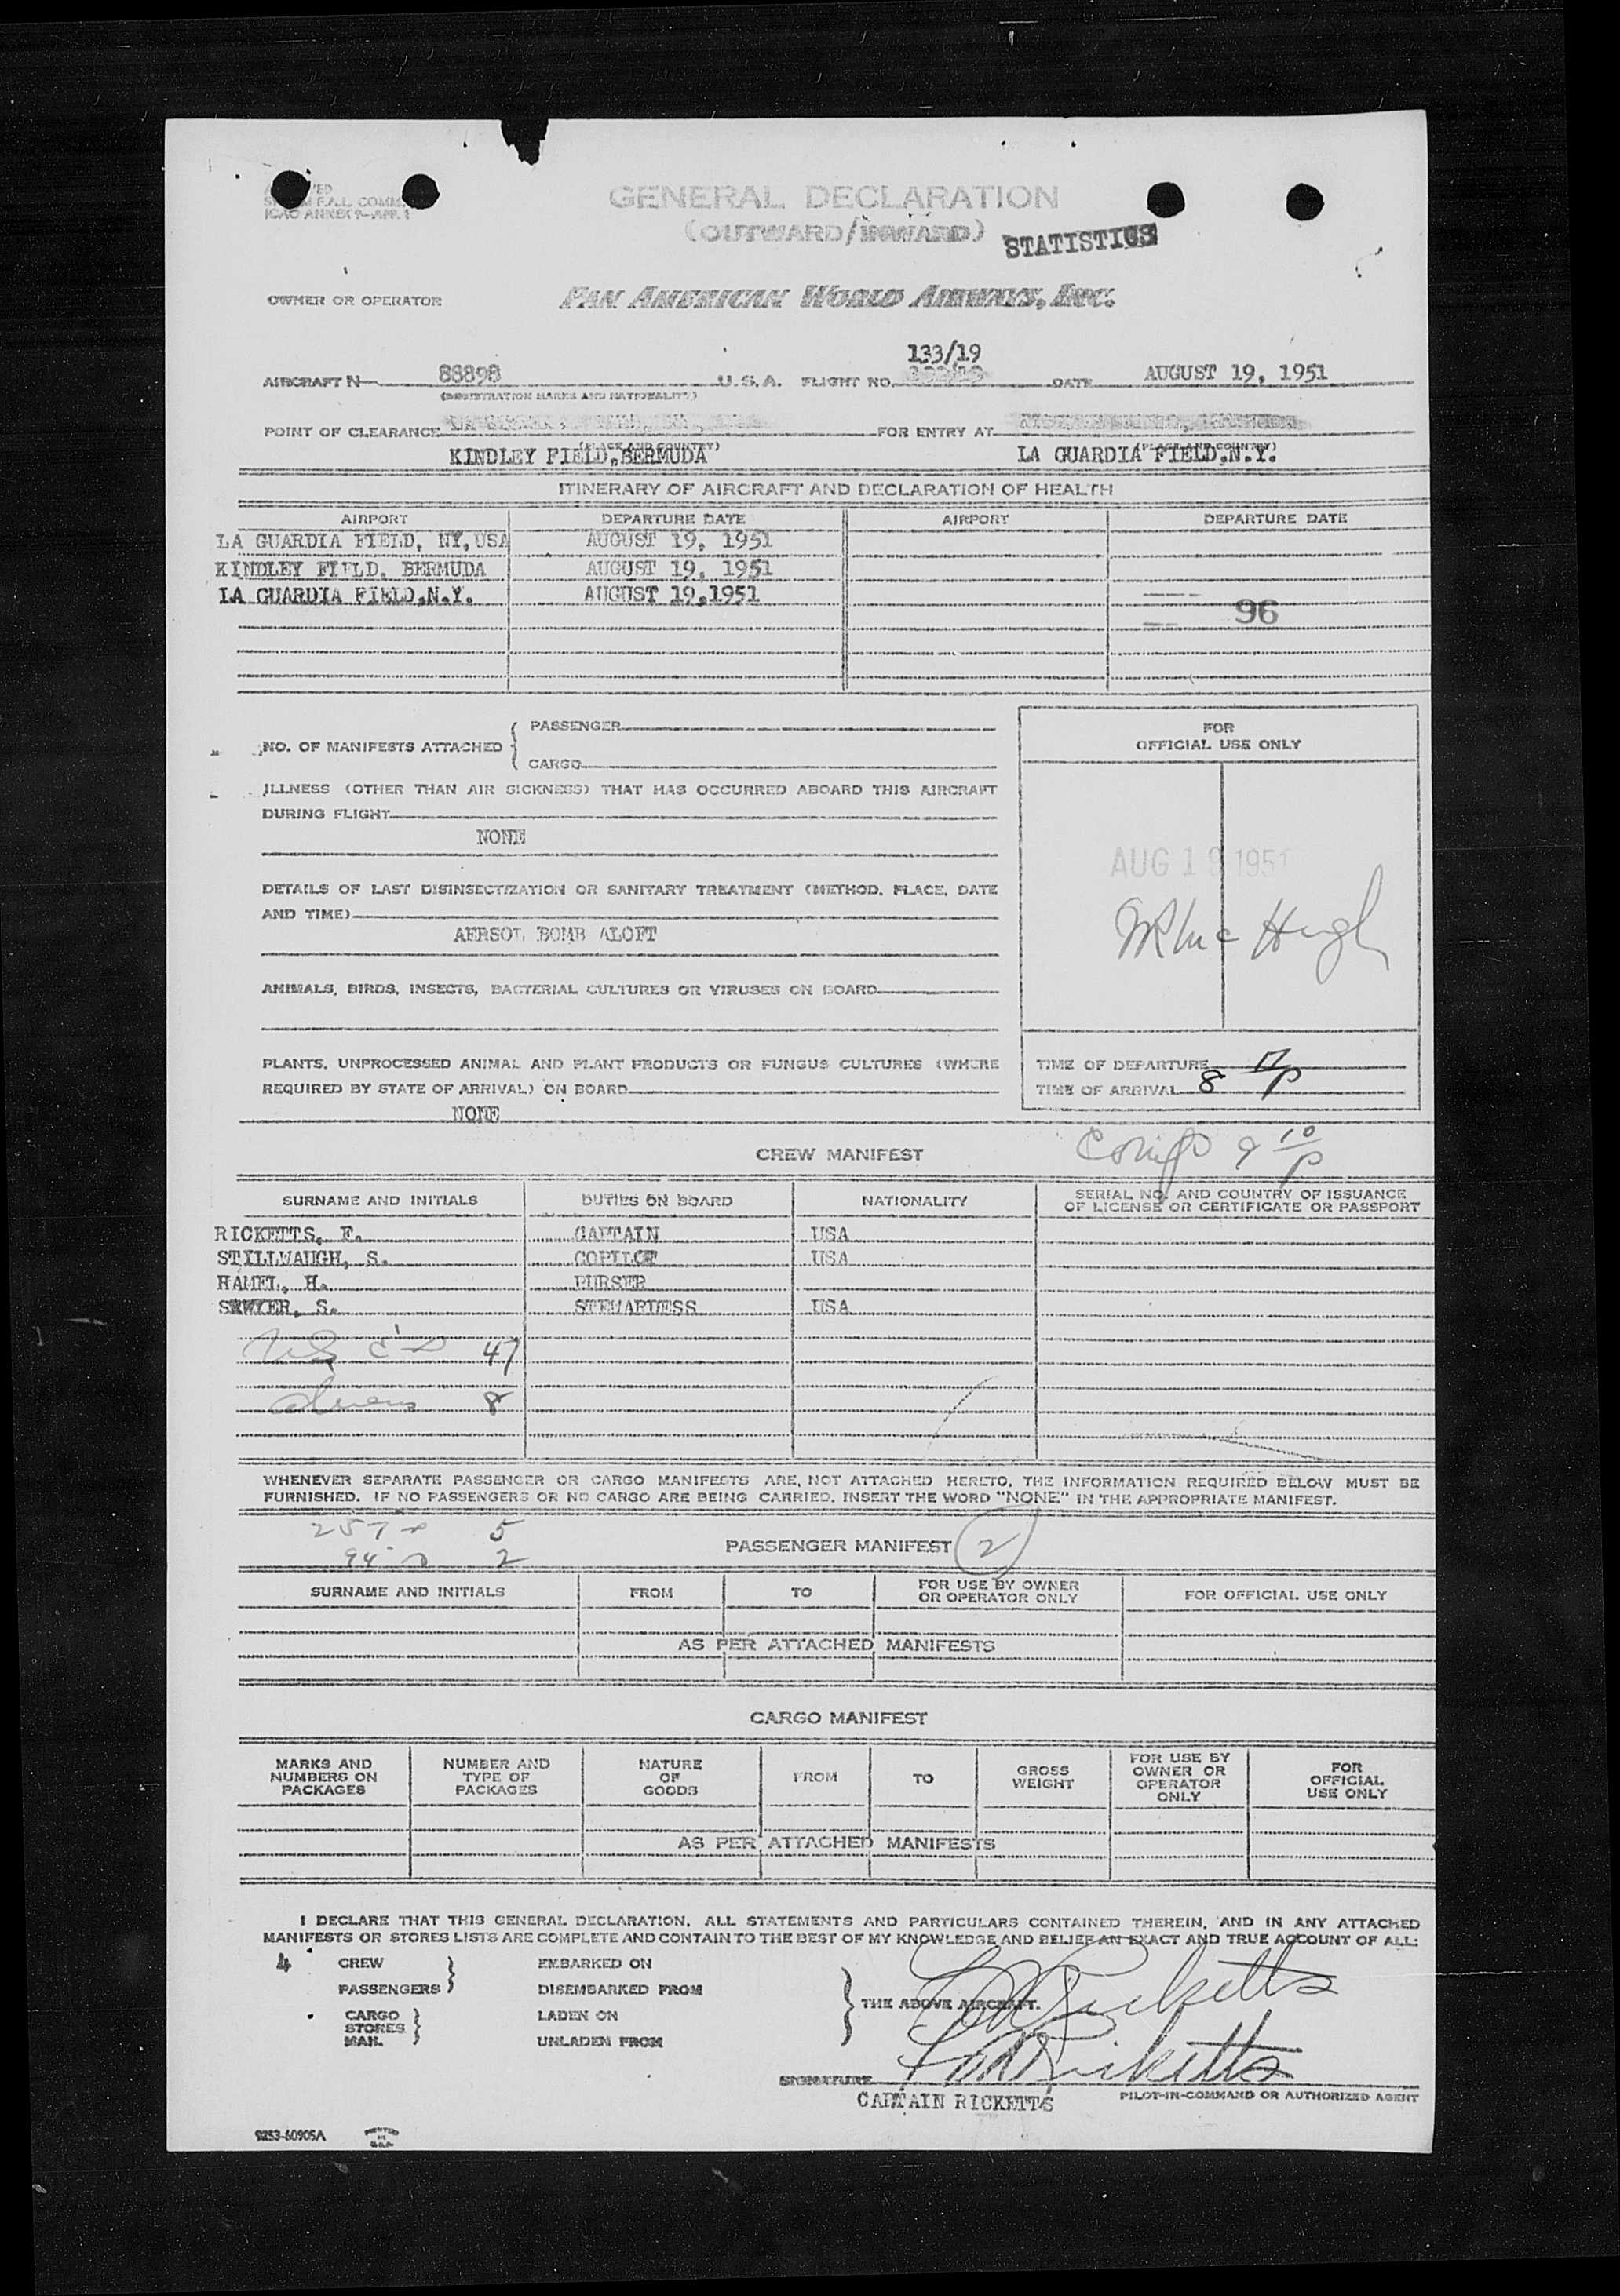 F.A.L. COMM.
ICAO ANNEX 9-APP. 1
GENERAL DECLARATION
(OUTWARD/INWARD)
STATISTICS
OWNER OR OPERATOR
PAN AMERICAN WORLD AIRWAYS, INC.
133/19
AIRCRAFT N 88898 U.S.A. FLIGHT NO. DATE AUGUST 19, 1951
(REGISTRATION MARKS AND NATIONALITY)
POINT OF CLEARANCE FOR ENTRY AT
(PLACE AND COUNTRY) (PLACE AND COUNTRY)
KINDLEY FIELD, BERMUDA LA GUARDIA FIELD, N.Y.
ITINERARY OF AIRCRAFT AND DECLARATION OF HEALTH
AIRPORT DEPARTURE DATE AIRPORT DEPARTURE DATE
LA GUARDIA FIELD, NY, USA AUGUST 19, 1951
KINDLEY FIELD, BERMUDA AUGUST 19, 1951
LA GUARDIA FIELD, N.Y. AUGUST 19, 1951
96
NO. OF MANIFESTS ATTACHED { PASSENGER
CARGO
FOR
OFFICIAL USE ONLY
ILLNESS (OTHER THAN AIR SICKNESS) THAT HAS OCCURRED ABOARD THIS AIRCRAFT
DURING FLIGHT
NONE
AUG 19 1951
DETAILS OF LAST DISINSECTIZATION OR SANITARY TREATMENT (METHOD, PLACE, DATE
AND TIME)
AERSOL BOMB ALOFT
McHugh
ANIMALS, BIRDS, INSECTS, BACTERIAL CULTURES OR VIRUSES ON BOARD
PLANTS, UNPROCESSED ANIMAL AND PLANT PRODUCTS OR FUNGUS CULTURES (WHERE
REQUIRED BY STATE OF ARRIVAL) ON BOARD
NONE
TIME OF DEPARTURE
TIME OF ARRIVAL 8 17/P
Comp 9 10/P
CREW MANIFEST
SURNAME AND INITIALS DUTIES ON BOARD NATIONALITY SERIAL NO. AND COUNTRY OF ISSUANCE
OF LICENSE OR CERTIFICATE OR PASSPORT
RICKETTS, F. CAPTAIN USA
STILLWAUGH, S. COPILOT USA
HAMEL, H. PURSER
SAWYER, S. STEWARDESS USA
US C's 47
aliens 8
WHENEVER SEPARATE PASSENGER OR CARGO MANIFESTS ARE NOT ATTACHED HERETO, THE INFORMATION REQUIRED BELOW MUST BE
FURNISHED. IF NO PASSENGERS OR NO CARGO ARE BEING CARRIED, INSERT THE WORD "NONE" IN THE APPROPRIATE MANIFEST.
257 5
94 2
PASSENGER MANIFEST 2
SURNAME AND INITIALS FROM TO FOR USE BY OWNER
OR OPERATOR ONLY FOR OFFICIAL USE ONLY
AS PER ATTACHED MANIFESTS
CARGO MANIFEST
MARKS AND
NUMBERS ON
PACKAGES
NUMBER AND
TYPE OF
PACKAGES
NATURE
OF
GOODS
FROM
TO
GROSS
WEIGHT
FOR USE BY
OWNER OR
OPERATOR
ONLY
FOR
OFFICIAL
USE ONLY
AS PER ATTACHED MANIFESTS
I DECLARE THAT THIS GENERAL DECLARATION, ALL STATEMENTS AND PARTICULARS CONTAINED THEREIN, AND IN ANY ATTACHED
MANIFESTS OR STORES LISTS ARE COMPLETE AND CONTAIN TO THE BEST OF MY KNOWLEDGE AND BELIEF AN EXACT AND TRUE ACCOUNT OF ALL:
4 CREW EMBARKED ON
PASSENGERS DISEMBARKED FROM
THE ABOVE AIRCRAFT.
CARGO LADEN ON
STORES
MAIL UNLADEN FROM
Ricketts
Ricketts
SIGNATURE
CAPTAIN RICKETTS
PILOT-IN-COMMAND OR AUTHORIZED AGENT
9253-60905A
PRINTED
IN
U.S.A.